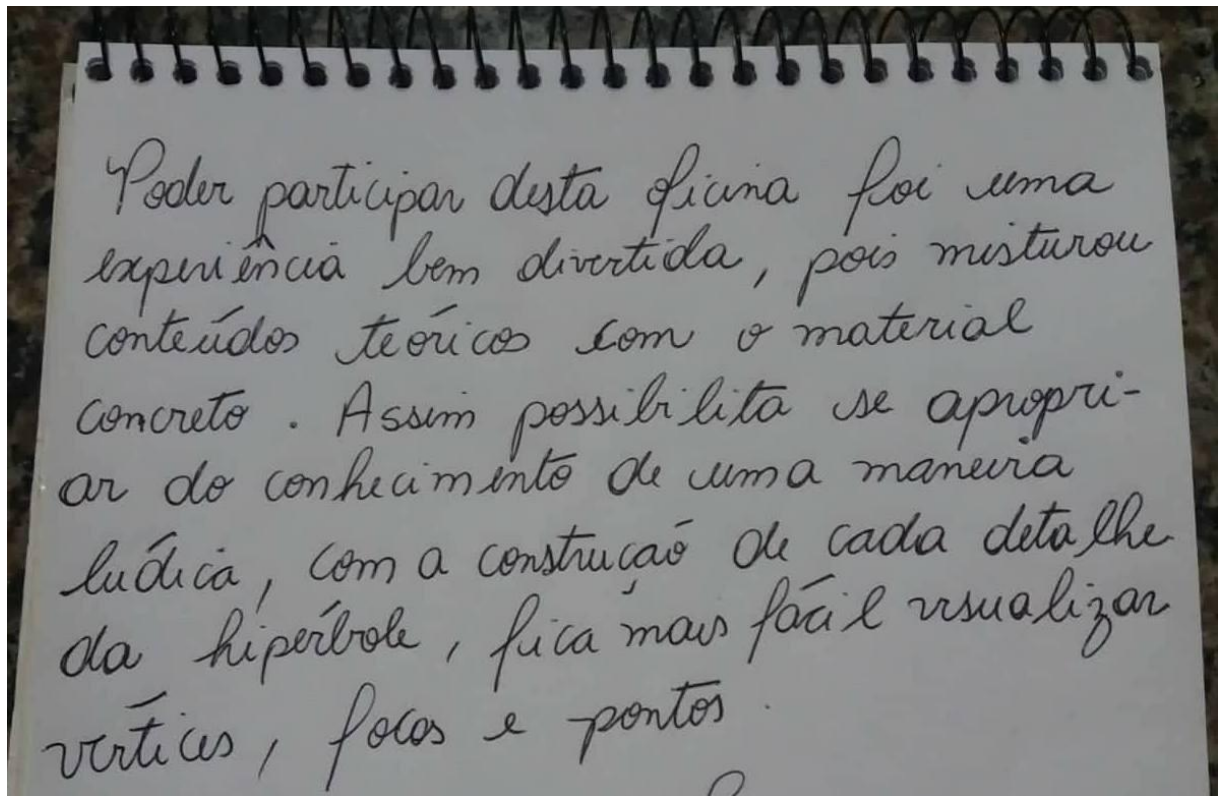 Poder participar desta oficina foi uma
experiência bem divertida, pois misturou
conteúdos teóricos com o material
concreto. Assim possibilita se apropri-
ar do conhecimento de uma maneira
lúdica, com a construção de cada detalhe
da hipérbole, fica mais fácil visualizar
vértices, focos e pontos.